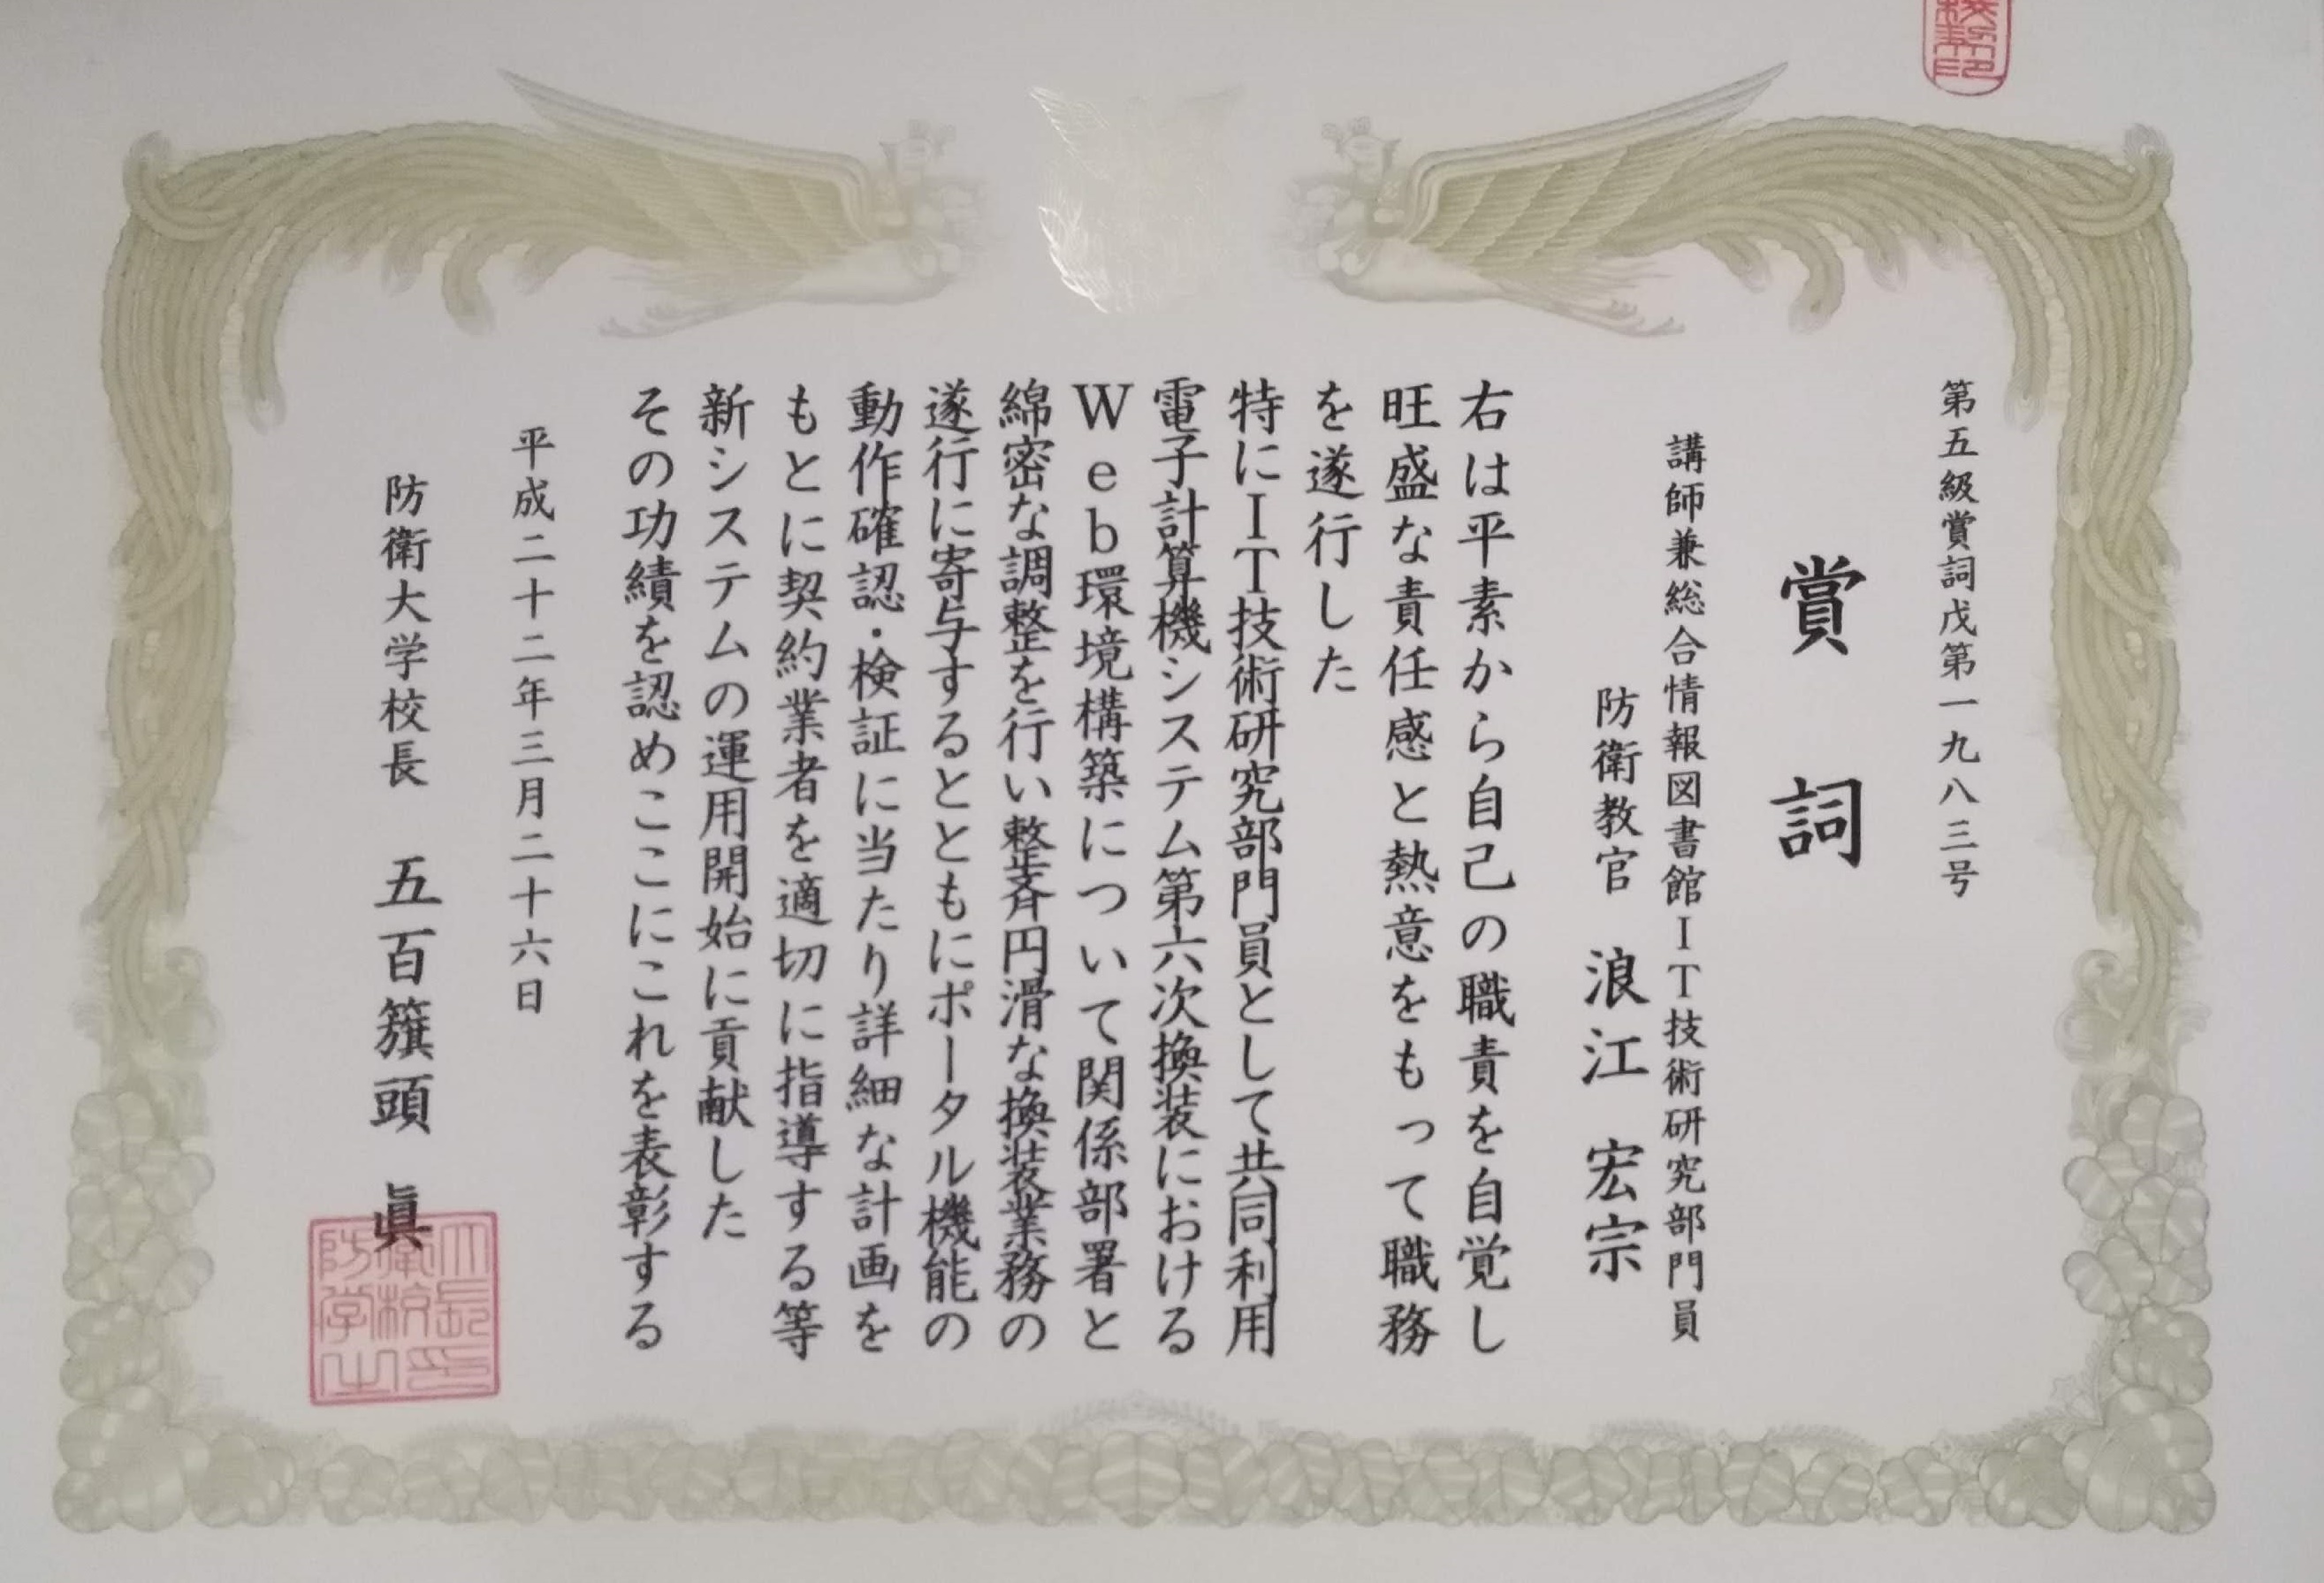 第五級賞詞戊第一九八三号
賞詞
講師兼総合情報図書館IT技術研究部門員
防衛教官 浪江 宏宗
右は平素から自己の職責を自覚し
旺盛な責任感と熱意をもって職務
を遂行した
特にIT技術研究部門員として共同利用
電子計算機システム第六次換装における
Web環境構築について関係部署と
綿密な調整を行い整斉円滑な換装業務の
遂行に寄与するとともにポータル機能の
動作確認・検証に当たり詳細な計画を
もとに契約業者を適切に指導する等
新システムの運用開始に貢献した
その功績を認めここにこれを表彰する
平成二十二年三月二十六日
防衛大学校長 五百籏頭 眞
防衛大
学校長
之印